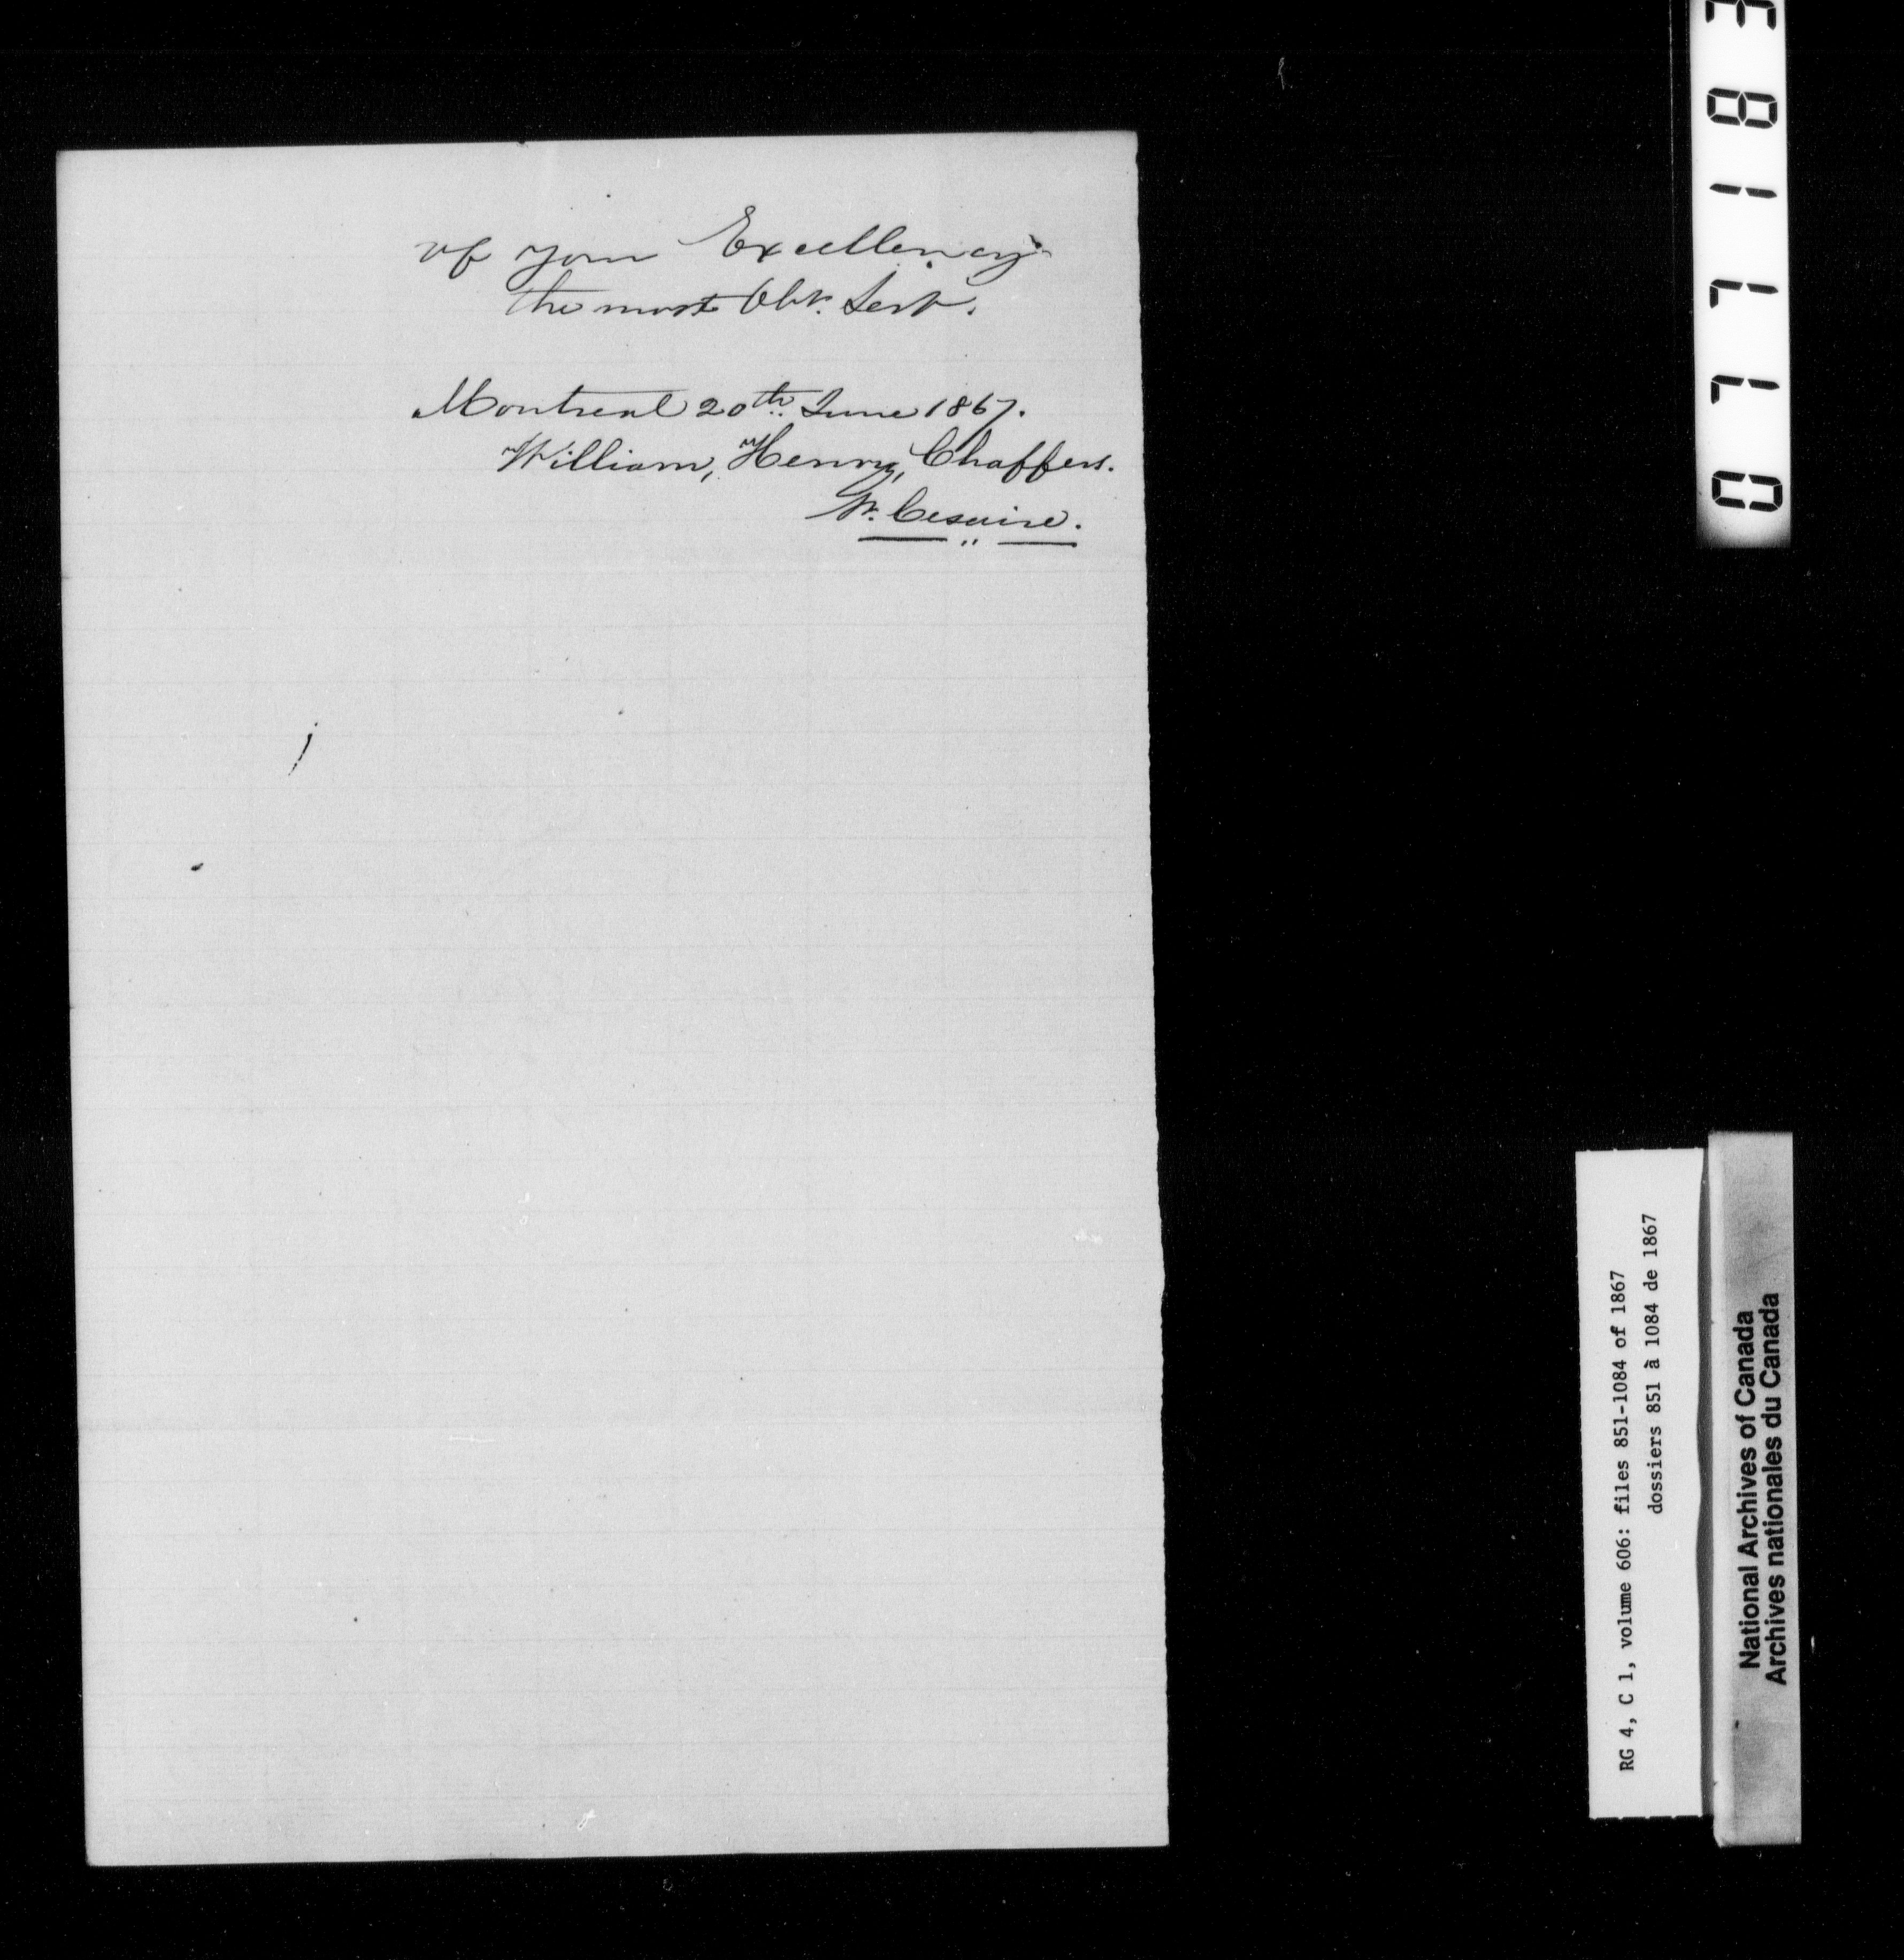 of your Excellency
the most Obt. Sert.
Montreal 20th June 1867.
William, Henry, Chaffers.
St. Cesaire.
RG 4, C 1, volume 606: files 851-1084 of 1867
dossiers 851 à 1084 de 1867
National Archives of Canada
Archives nationales du Canada